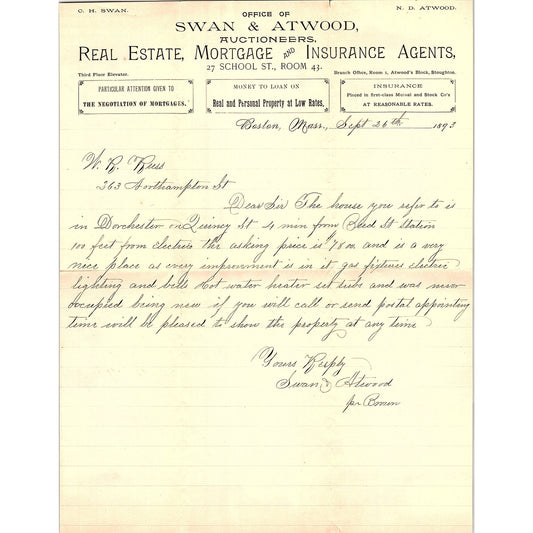 C. H. SWAN. N. D. ATWOOD.
OFFICE OF
SWAN & ATWOOD,
AUCTIONEERS,
REAL ESTATE, MORTGAGE AND INSURANCE AGENTS,
27 SCHOOL ST., ROOM 43.
Third Floor Elevator. Branch Office, Room 1, Atwood's Block, Stoughton.
PARTICULAR ATTENTION GIVEN TO
THE NEGOTIATION OF MORTGAGES.
MONEY TO LOAN ON
Real and Personal Property at Low Rates,
INSURANCE
Placed in first-class Mutual and Stock Co's
AT REASONABLE RATES.
Boston, Mass., Sept 26th 1893
W. R. Russ
263 Northampton St
Dear Sir The house you refer to is
in Dorchester on Quincy St 4 min from Bird St Station
100 feet from electrics the asking price is 7800 and is a very
nice place as every improvment is in it gas fixtures electric
lighting and bells hot water heater set tubs and was never
occupied being new if you will call or send postal appointing
time will be pleased to show the property at any time
Yours Resply
Swan & Atwood
per Bowen